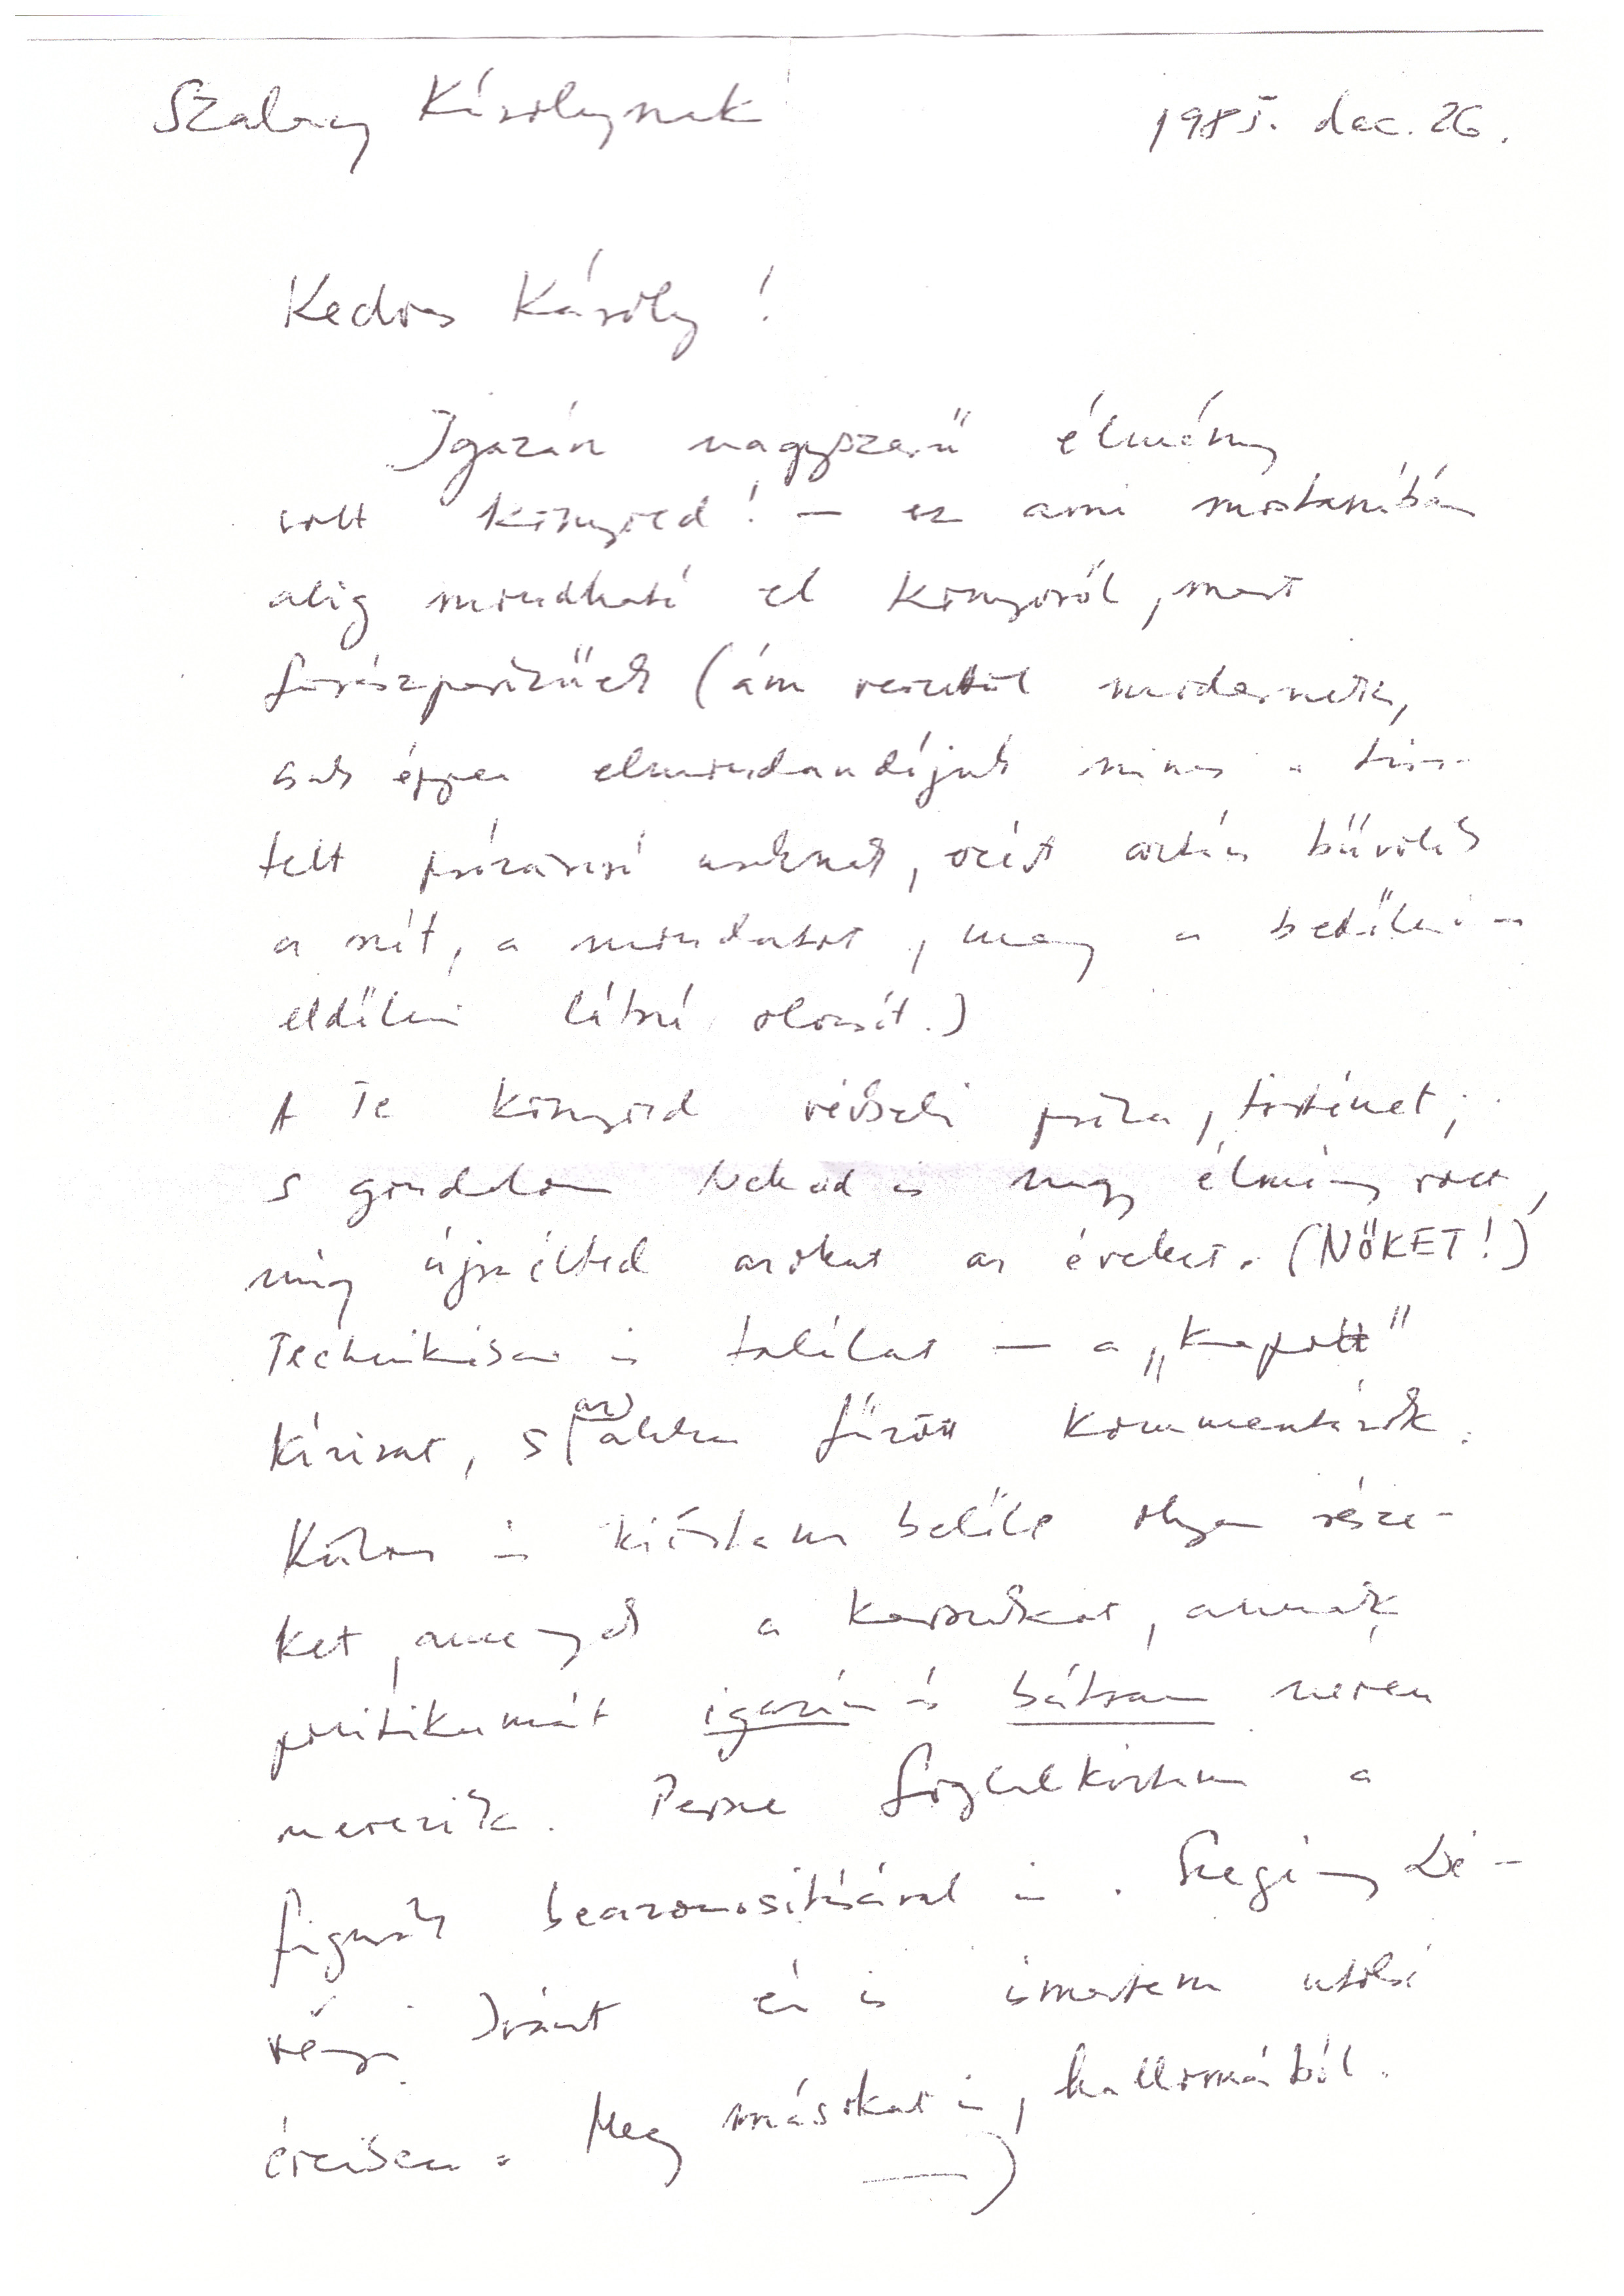 Szalay Károlynak 1985. dec. 26.
Kedves Károly!
Igazán nagyszerű élmény
volt könyved! – ez ami mostanában
alig mondható el könyvről, mert
fűrészporízűek (ám részben modernek,
csak éppen elmondandójuk nincs a
telt prózaíró uraknak, ezért aztán bűvölik
a szót, a mondatot, meg a bedőlni –
eldőlni látszó olvasót.)
A Te könyved valódi próza, történet;
s gondolom Neked is nagy élmény volt,
míg újraélted azokat az éveket. (NŐKET!)
Technikása is találat – a „kapott"
kézirat, s az ahhoz fűzött kommentárok.
Külön is kiírtam belőle olyan része-
ket, amelyek a korszakot, annak
politikumát igazán és bátran néven
nevezik. Persze foglalkoztam a
figurák beazonosításával is. Szegény Dé-
vényi Ivánt én is ismertem utolsó
éveiben. Meg másokat is, hallomásból.